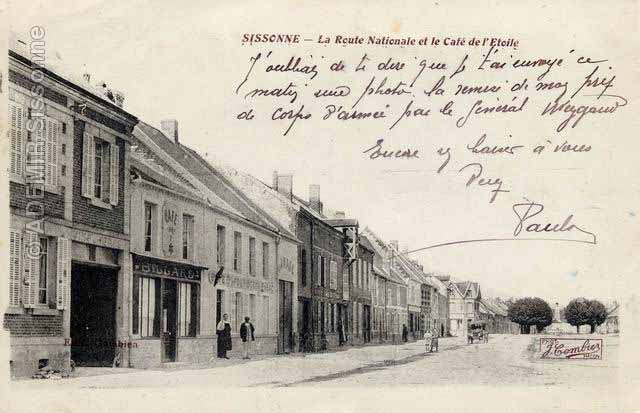 SISSONNE – La Route Nationale et le Café de l'Etoile
J'oubliais de te dire que je t'ai envoyé ce
matin une photo. la remise de mon prix
de corps d'armée par le Général Weygand
Encore un baiser à vous
Paulo
CAFÉ
BILLARD
© ADEM Sissonne
J. Combier
MACON